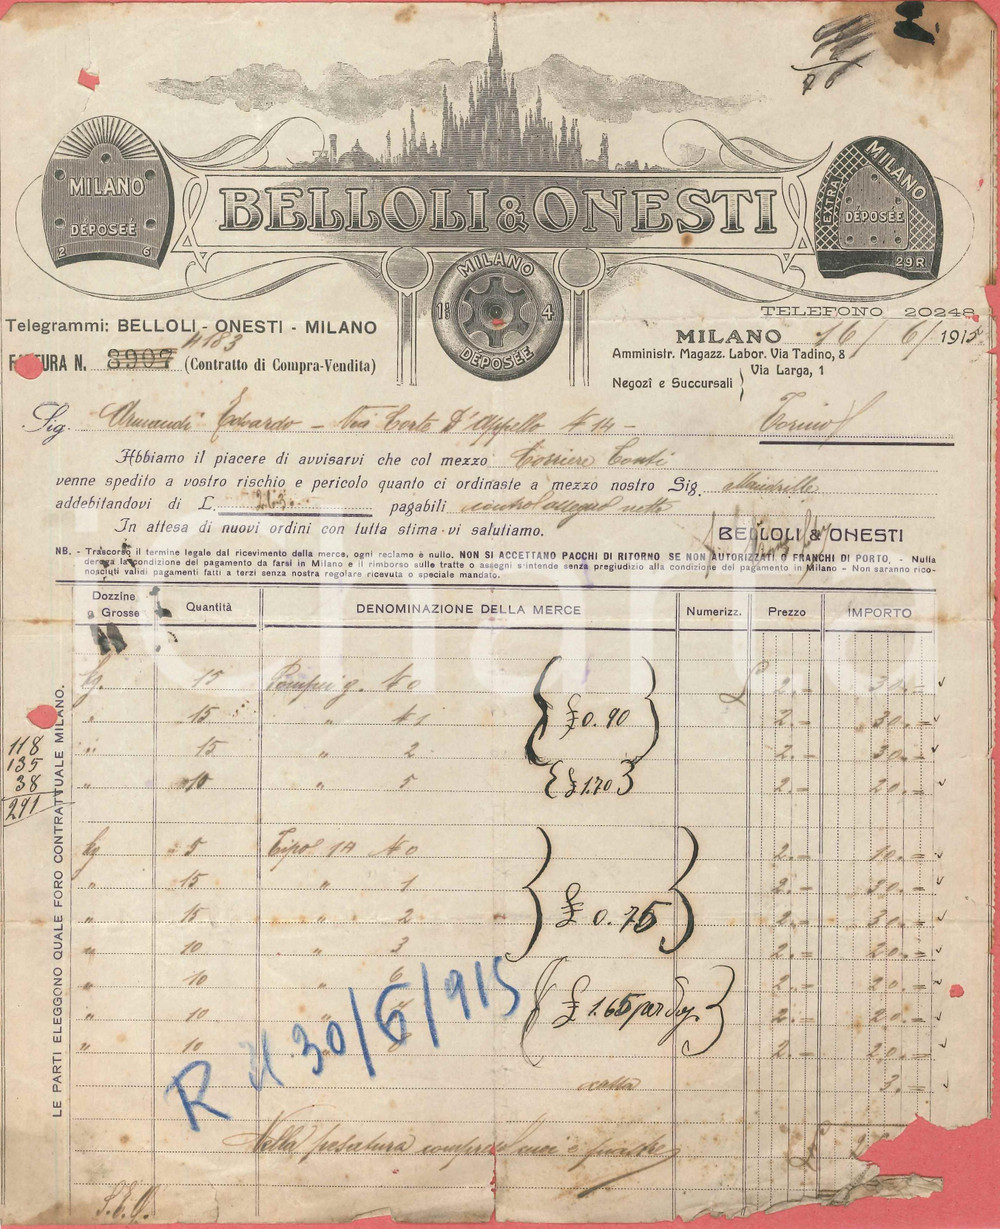 76
MILANO
DÉPOSÉE
2 6
BELLOLI & ONESTI
MILANO
EXTRA
DÉPOSÉE
29R
MILANO
4
DÉPOSÉE
TELEFONO 20248
Telegrammi: BELLOLI - ONESTI - MILANO
4183
FATTURA N. 3907 (Contratto di Compra-Vendita)
MILANO 16/6/1915
Amministr. Magazz. Labor. Via Tadino, 8
Negozî e Succursali } Via Larga, 1
Sig. Armandi Edoardo - Via Corte D'Appello N 14 - Torino
Abbiamo il piacere di avvisarvi che col mezzo Corriere Conti
venne spedito a vostro rischio e pericolo quanto ci ordinaste a mezzo nostro Sig.
addebitandovi di L. 263 pagabili
In attesa di nuovi ordini con tutta stima vi salutiamo.
BELLOLI & ONESTI
NB. - Trascorso il termine legale dal ricevimento della merce, ogni reclamo è nullo. NON SI ACCETTANO PACCHI DI RITORNO SE NON AUTORIZZATI O FRANCHI DI PORTO. - Nulla
deroga la condizione del pagamento da farsi in Milano e il rimborso sulle tratte o assegni s'intende senza pregiudizio alla condizione del pagamento in Milano - Non saranno rico-
nosciuti validi pagamenti fatti a terzi senza nostra regolare ricevuta o speciale mandato.
Dozzine o Grosse Quantità DENOMINAZIONE DELLA MERCE Numerizz. Prezzo IMPORTO
Kg. 15 N 0 £ 2.= 30.=
" 15 " N 1 £ 0.90 2.= 30.=
" 15 " 2 2.= 30.=
" 10 " 5 £ 1.70 2.= 20.=
118
135
38
291
Kg 5 Tipo 14 N 0 2.= 10.=
" 15 " 1 2.= 30.=
" 15 " 2 £ 0.75 2.= 30.=
" 10 " 3 2.= 20.=
" 10 6 2.= 20.=
" 10 £ 1.65 per 2.= 20.=
" 10 8 2.= 20.=
cassa 3.=
R il 30/6/915
Nella
£ 2
S.E.O.
LE PARTI ELEGGONO QUALE FORO CONTRATTUALE MILANO.